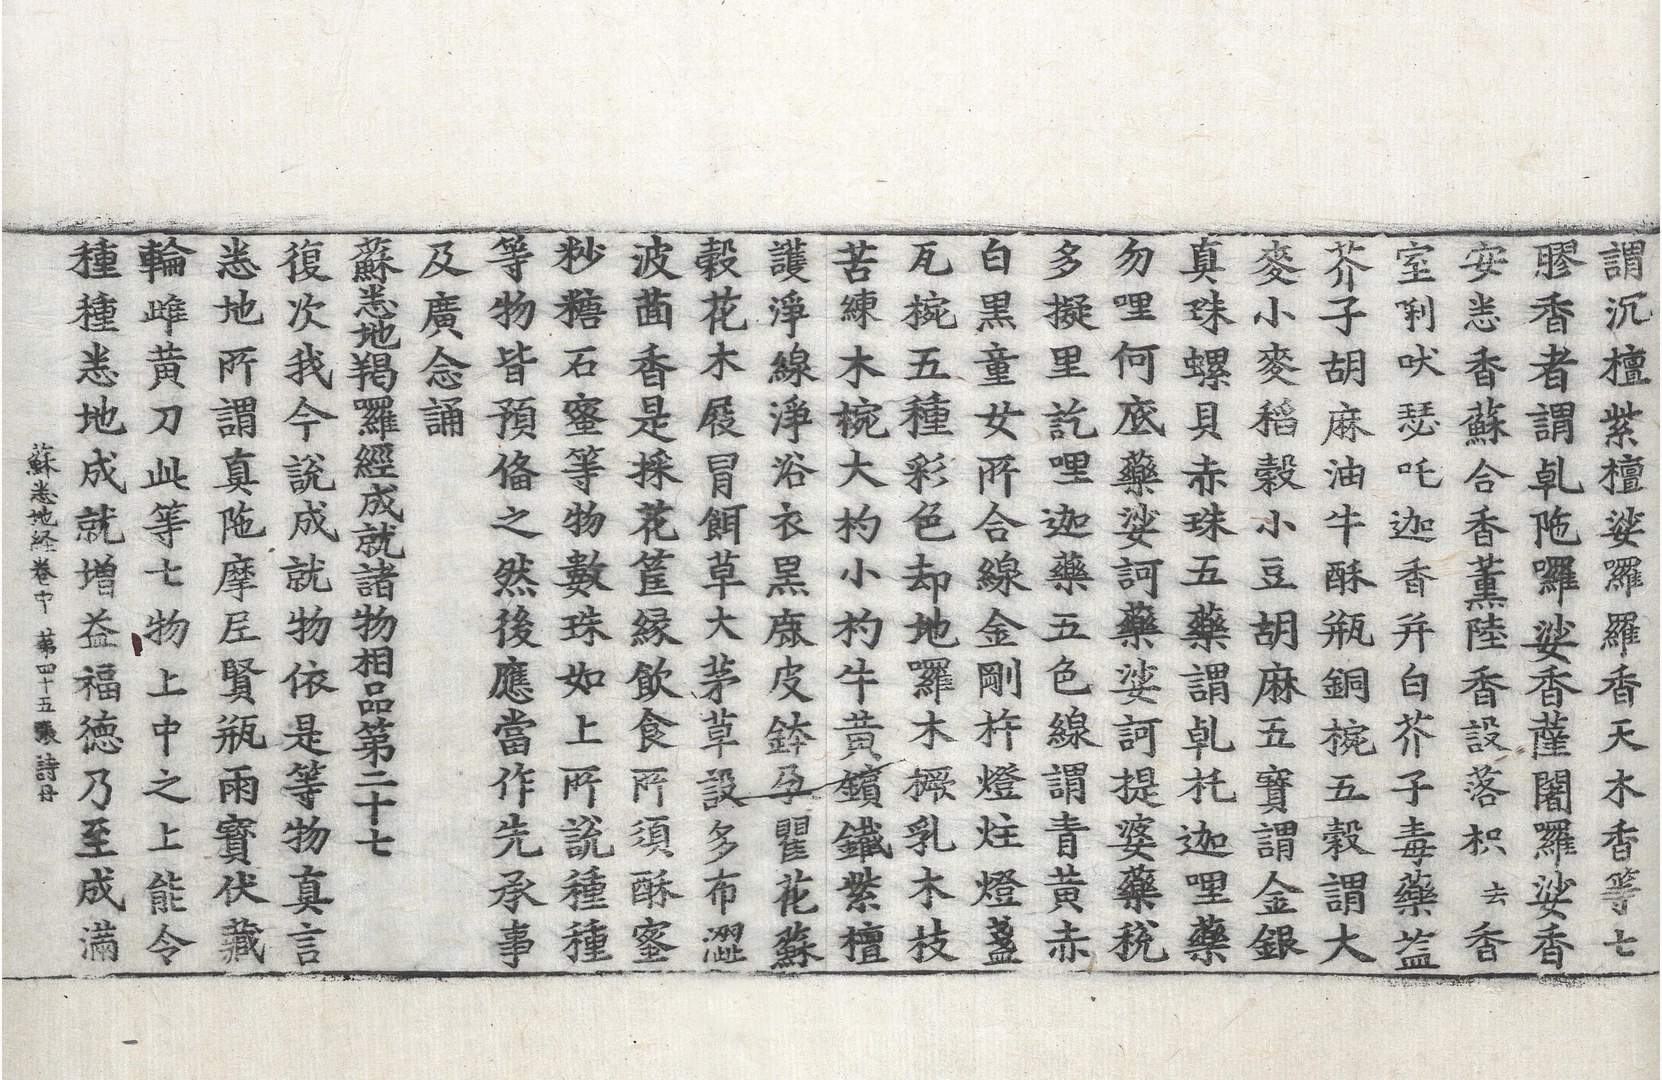 謂沉檀紫檀娑囉羅香天木香等七
膠香者謂乹陁囉娑香薩闍羅娑香
安悉香蘇合香薰陸香設落枳去香
室唎吠瑟吒迦香并白芥子毒藥盐
芥子胡麻油牛酥瓶銅椀五穀謂大
麥小麥稻穀小豆胡麻五寶謂金銀
真珠螺貝赤珠五藥謂乹托迦哩藥
勿哩何底藥娑訶藥娑訶提婆藥稅
多擬里訖哩迦藥五色線謂青黃赤
白黑童女所合線金剛杵燈炷燈盞
瓦椀五種彩色却地囉木橛乳木枝
苦練木椀大杓小杓牛黃鑌鐵紫檀
護淨線淨浴衣黑鹿皮鉢孕瞿花蘇
穀花木屐冒餌草大茅草設多布澀
波茴香是採花筐緣飲食所須酥蜜
粆糖石蜜等物數珠如上所說種種
等物皆預俻之然後應當作先承事
及廣念誦
蘇悉地羯囉經成就諸物相品第二十七
復次我今說成就物依是等物真言
悉地所謂真陁摩尼賢瓶雨寶伏藏
輪雌黃刀此等七物上中之上能令
種種悉地成就增益福德乃至成滿
蘇悉地経卷中 第四十五張 詩丹